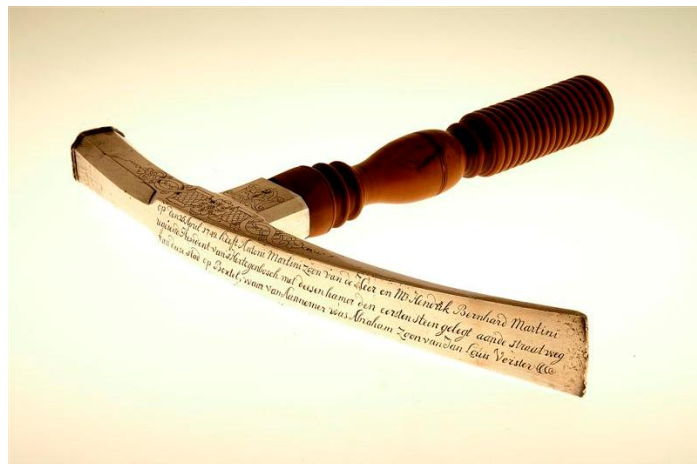 op den April 1742 heeft Antoni Martini Zoon van de Heer en Mr Hendrik Bernhard Martini
President van sHertogenbosch met deesen hamer den eersten steen gelegt aande straatweg
van deese stad op Boxtel, waar van Aannemer was Abraham Zoon van Jan Louis Verster &c